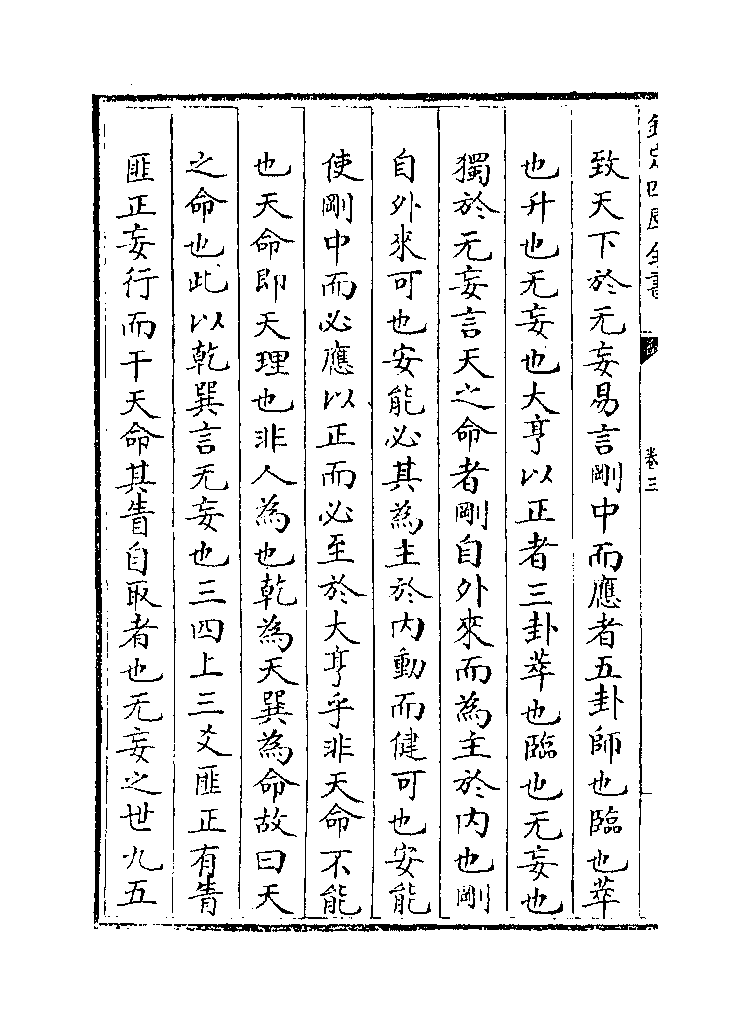 欽定四庫全書
卷三
致天下於无妄易言剛中而應者五卦師也臨也萃
也升也无妄也大亨以正者三卦萃也臨也无妄也
獨於无妄言天之命者剛自外來而為主於内也剛
自外來可也安能必其為主於内動而健可也安能
使剛中而必應以正而必至於大亨乎非天命不能
也天命即天理也非人為也乾為天巽為命故曰天
之命也此以乾巽言无妄也三四上三爻匪正有眚
匪正妄行而干天命其眚自取者也无妄之世九五